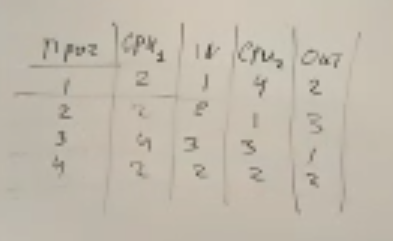 Приз CPU1 IN CPU2 OUT
1 2 1 4 2
2 2 2 1 3
3 4 3 3 1
4 2 2 2 2